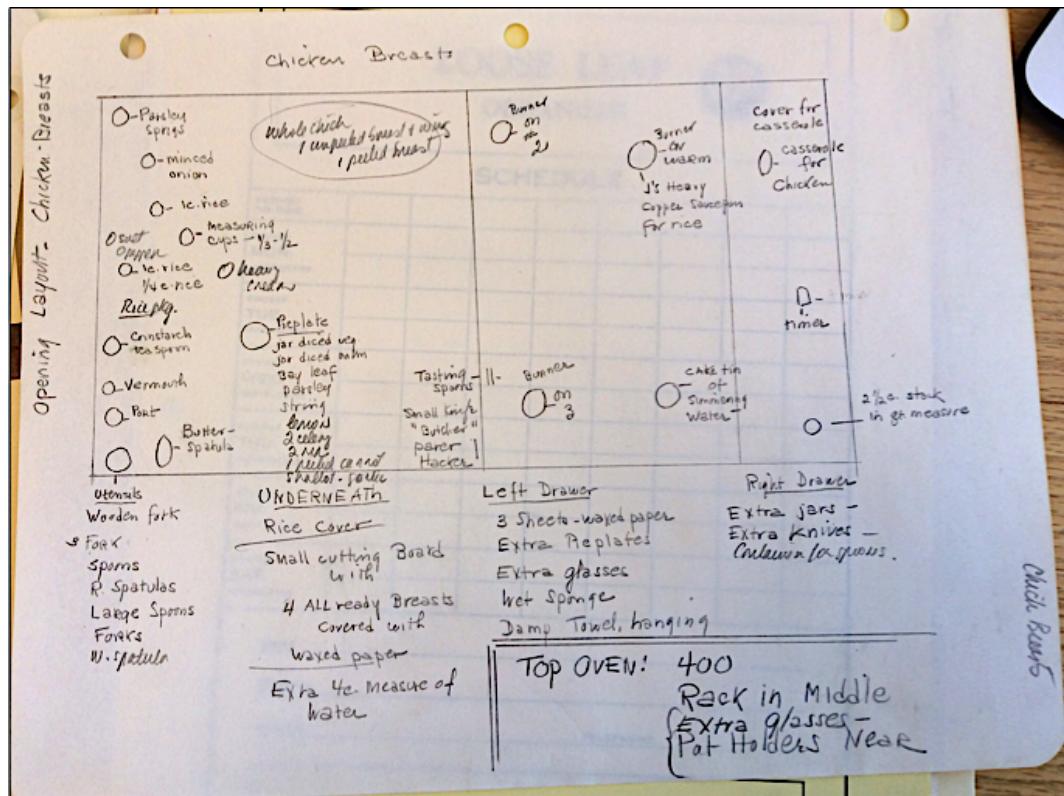 Chicken Breasts
Opening Layout - Chicken-Breasts
Parsley
Sprigs
minced
onion
1c. rice
Measuring
cups - 1/3 - 1/2
1c. rice
1/4 c. rice
heavy
cream
Rice pkg.
Cornstarch
teaspoon
Vermouth
Port
Butter -
Spatula
whole chick
1 unpeeled breast + wing
1 peeled breast
Pieplate
jar diced veg
jar diced onion
Bay leaf
parsley
string
lemon
2 celery
1 peeled carrot
Tasting
spoons
Small knife
"Butcher"
parer
Hacker
Burner
on
2
Burner
on
warm
J's Heavy
Copper Saucepan
For rice
Burner
on
3
Cake tin
of
Simmering
Water
Cover for
casserole
casserole
for
Chicken
timer
2 1/2 c. stock
in qt. measure
Utensils
Wooden fork
3 Fork
Spoons
R. Spatulas
Large Spoons
Forks
W. Spatula
UNDERNEATH
Rice Cover
Small cutting Board
with
4 All ready Breasts
covered with
waxed paper
Extra 4c. measure of
water
Left Drawer
3 Sheets - waxed paper
Extra Pieplates
Extra glasses
Wet Sponge
Damp Towel, hanging
Right Drawer
Extra jars -
Extra Knives -
Container for spoons.
TOP OVEN: 400
Rack in Middle
Extra glasses -
Pot Holders Near
Chick Breasts
LOOSE LEAF
SCHEDULE